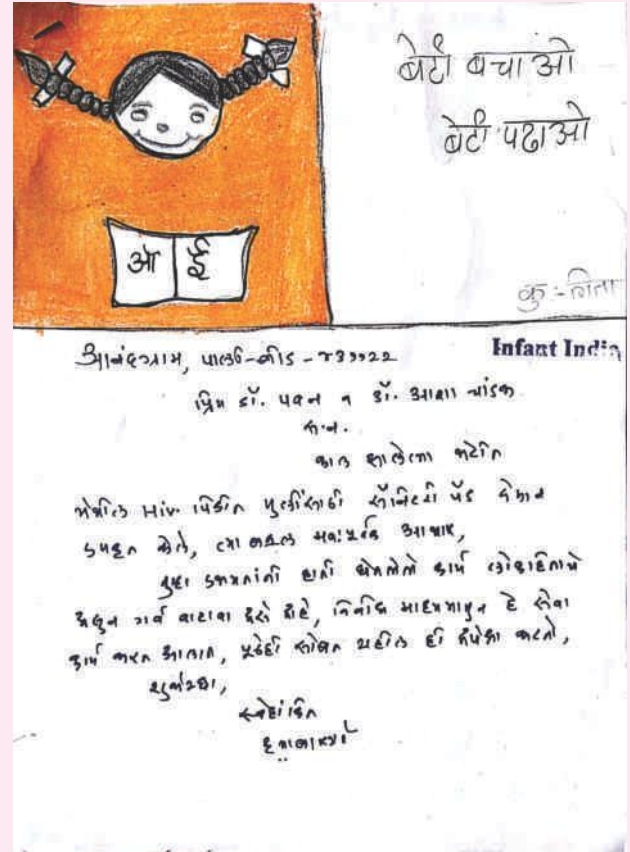 बेटी बचाओ
बेटी पढाओ
ऑ ई
कु -
Infant India
आनंदग्राम, पाली-बीड - ४३११२२
प्रिय डॉ. पवन व डॉ. आशा चांडक
स.न.
काल झालेल्या भेटीत
संस्थेतील HIV. पिडीत मुलींसाठी सॅनिटरी पॅड देऊन
उपकृत केले, त्या बद्दल मनःपूर्वक आभार,
तुम्हा उभयतांनी हाती घेतलेले कार्य लोकहिताचे
असून गर्व वाटावा असे आहे, हे सेवा
कार्य करत आलात, पुढेही सोबत राहील ही अपेक्षा करतो,
स्नेहांकित